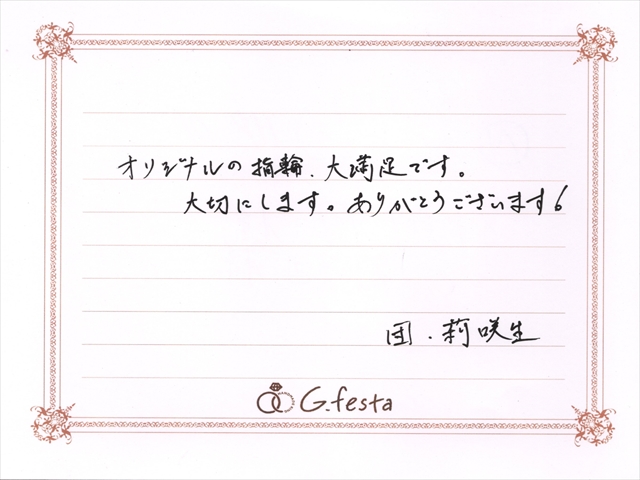 オリジナルの指輪、大満足です。
大切にします。ありがとうございます。
団・莉咲生
G.festa